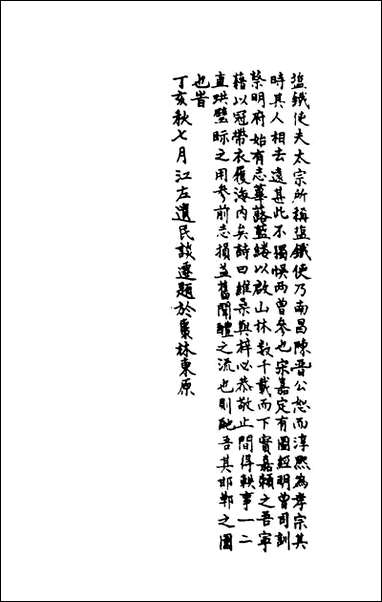 盐鐵使夫太宗所稱盐鐵使乃南昌陳晋公恕而淳熙為孝宗其
時其人相去遠甚此不獨悞两曾参也宋嘉定有圖經明曾司訓
榮明府始有志蓽蕗藍縷以啟山林数千載而下實嘉賴之吾寧
藉以冠帶衣履海内矣詩曰維桑與梓必恭敬止間得軼事一二
直珙璧眎之用参前志損益舊聞醴之流也則酏吾其邯鄲之圖
也昔
丁亥秋七月江左遺民談遷題於棗林東原